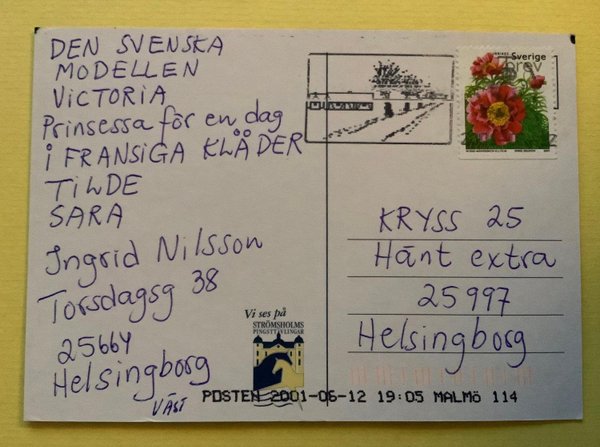 DEN SVENSKA
MODELLEN
VICTORIA
Prinsessa för en dag
i FRANSIGA KLÄDER
TILDE
SARA
Ingrid Nilsson
Torsdagsg 38
25664
Helsingborg
VÄST
Sverige
brev
KRYSS 25
Hänt extra
25997
Helsingborg
Vi ses på
STRÖMSHOLMS
PINGSTTÄVLINGAR
POSTEN 2001-06-12 19:05 MALMÖ 114